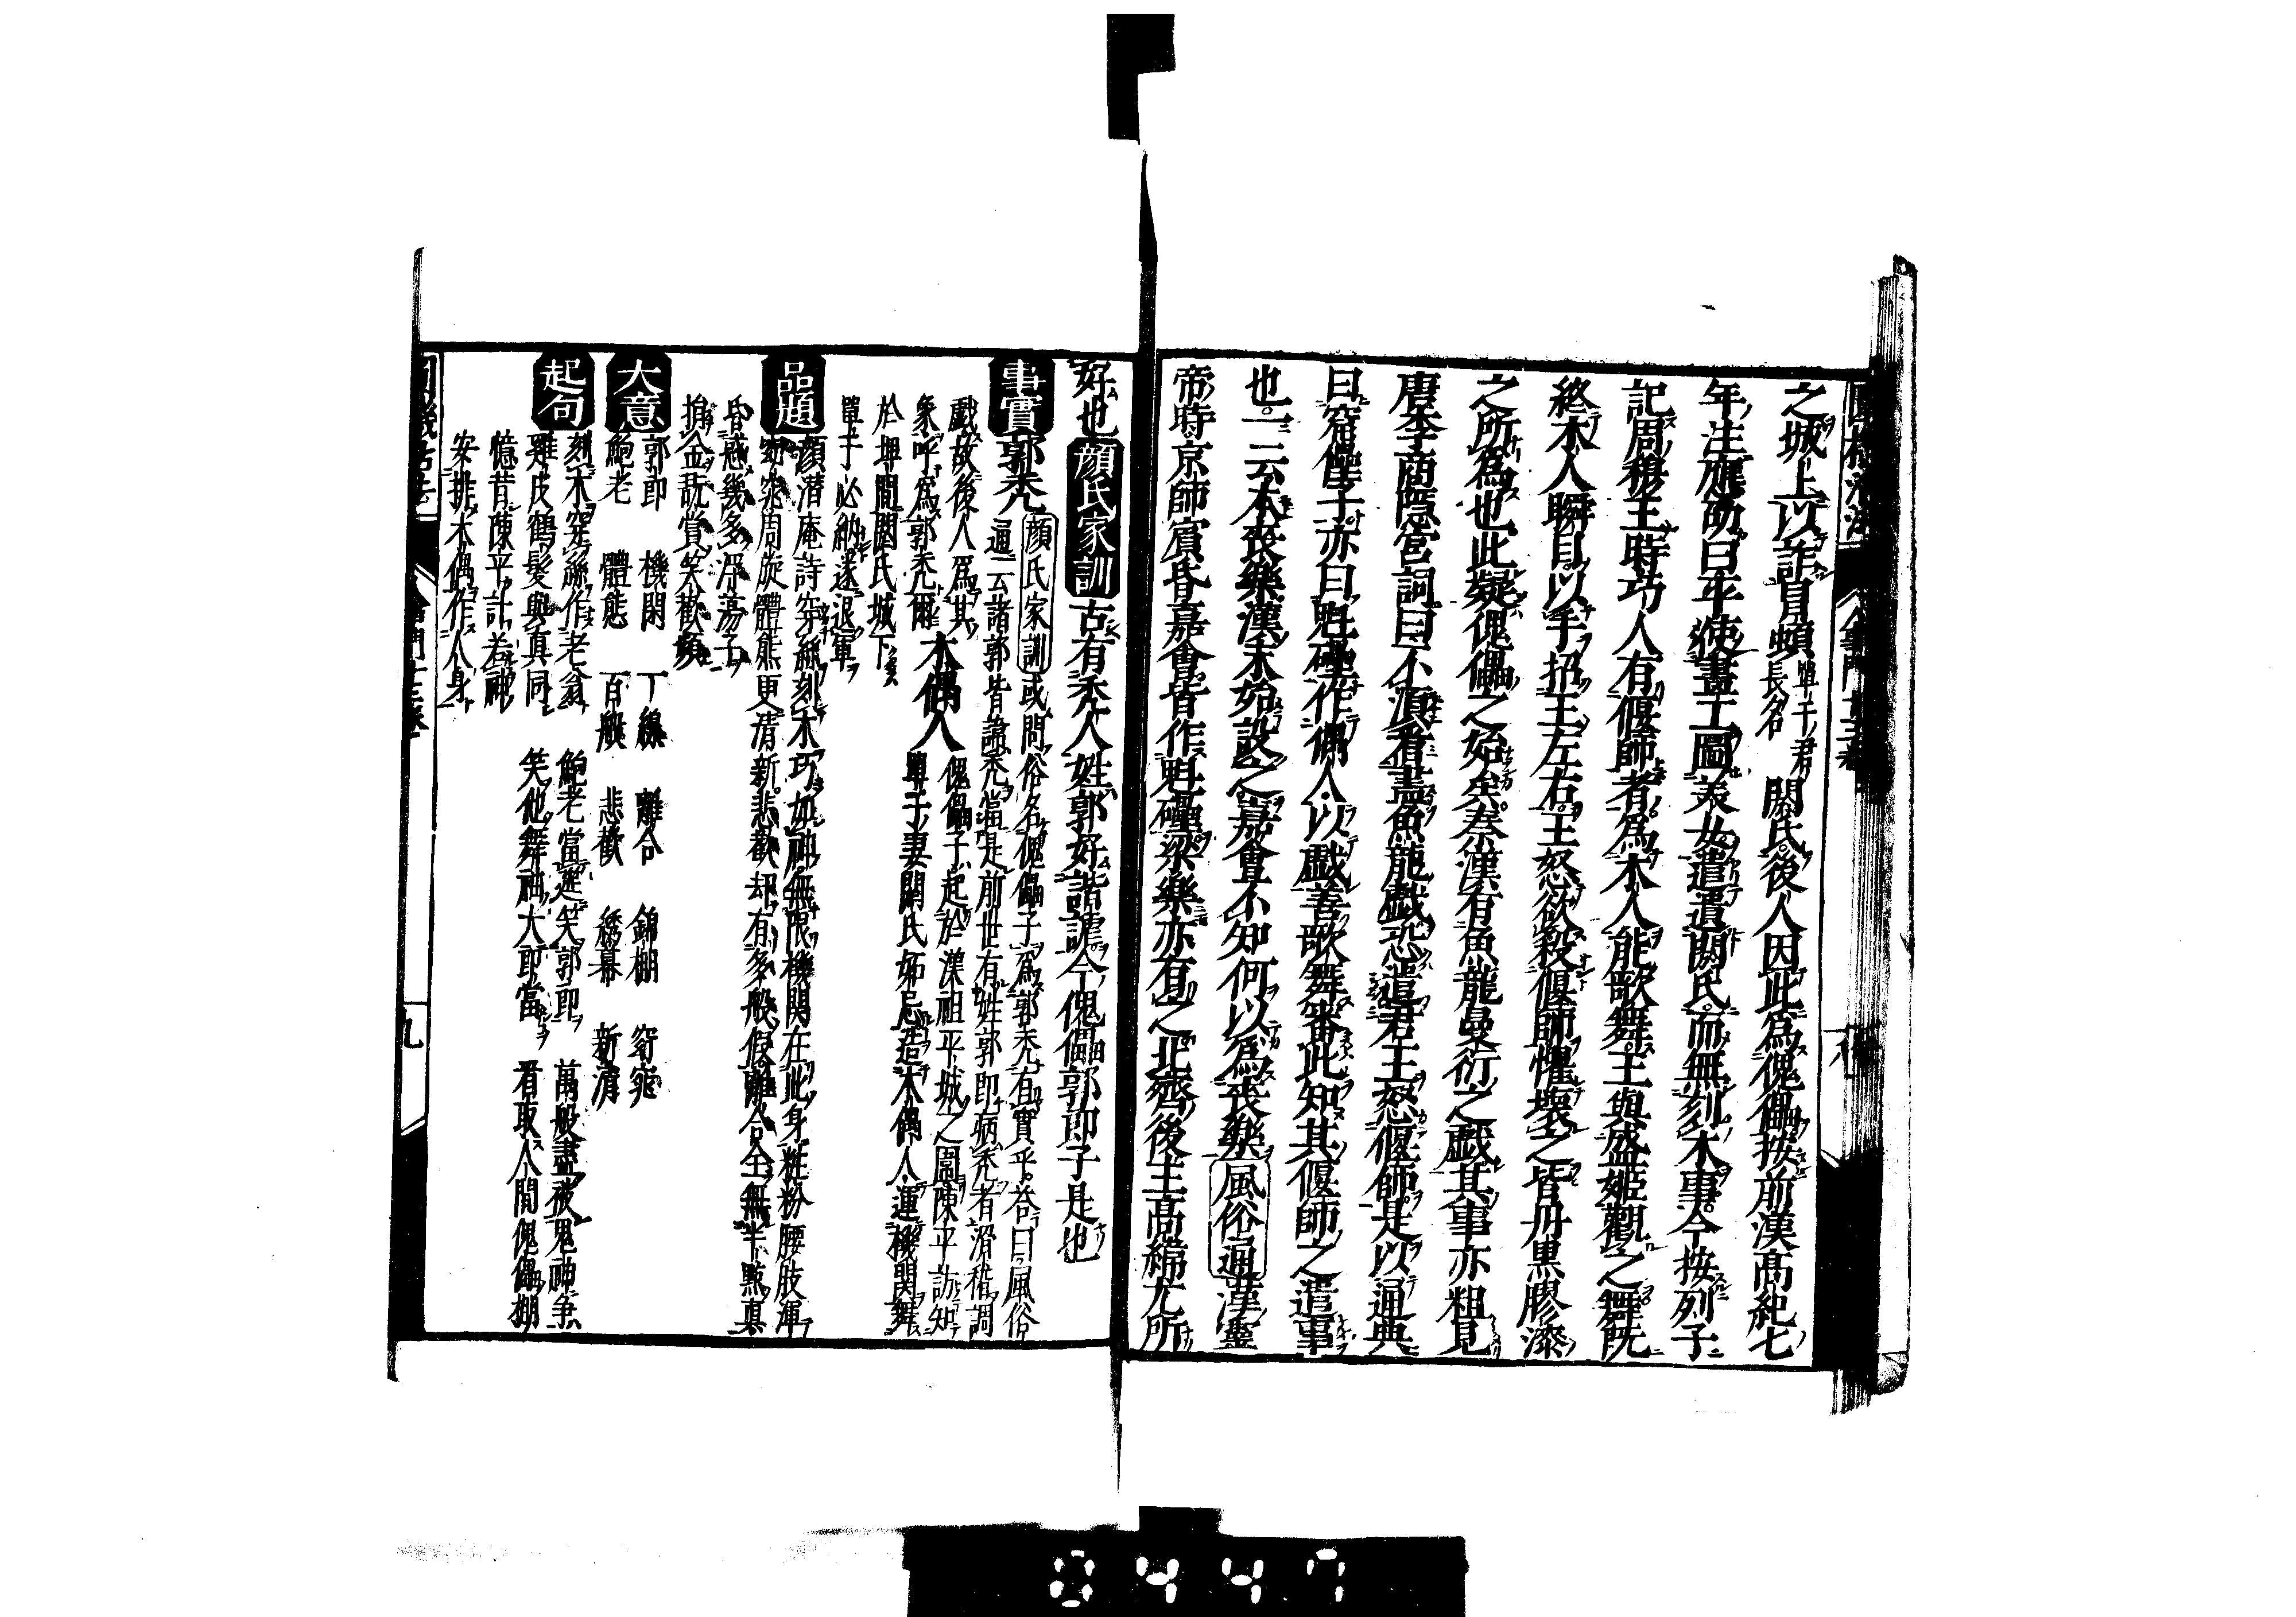 之城上以詐冐頓單于君長名閼氏後人因此爲傀儡按前漢髙紀七
年注應劭曰平使畫工圖美女遣遺閼氏而無刻木事今按列子
記周穆王時巧人有偃師者爲木人能歌舞王與盛姬觀之舞既
終木人瞬目以手招王左右王怒欲殺偃師懼壞之皆丹黒膠漆
之所爲也此疑傀儡之始矣秦漢有魚龍曼衍之戯其事亦粗見
唐李商隠宮詞曰不須看盡魚龍戯恐遣君王怒偃師是以通典
曰窟儡子亦曰魁礧作偶人以戯善歌舞審此知其偃師之遺事
也一云本喪樂漢末始設之嘉會不知何以爲喪樂風俗通漢靈
帝時京師賓昏嘉會皆作魁礧梁樂亦有之北齊後主髙緯尤所
好也顔氏家訓古有禿人姓郭好諧謔今傀儡郭郎子是也
事實郭禿顔氏家訓或問俗名傀儡子爲郭禿有實乎荅曰風俗
通云諸郭皆諱禿當是前世有姓郭郎病禿者滑稽調
戯故後人爲其
象呼爲郭禿爾木偶人傀儡子起於漢祖平城之圍陳平訪知
單于妻閼氏妬忌造木偶人運機関舞
於埤間閼氏城下
單于必納遂退軍
品題顔潜庵詩穿絲刻木巧如神無限機関在此身粧粉腰肢渾
窈窕周旋體態更清新悲歡却有多般假離合全無半點真
昏惑幾多浮蕩子
揮金翫賞笑歡頻
大意郭郎 機関 丁線 離合 錦棚 窈窕
鮑老 體態 百般 悲歡 綉幕 新清
起句刻木穿絲作老翁 鮑老當筵笑郭郎 萬般盡被鬼神争
雞皮鶴髮與真同 笑他舞袖大郎當 看取人間傀儡棚
憶昔陳平計若神
安排木偶作人身
九